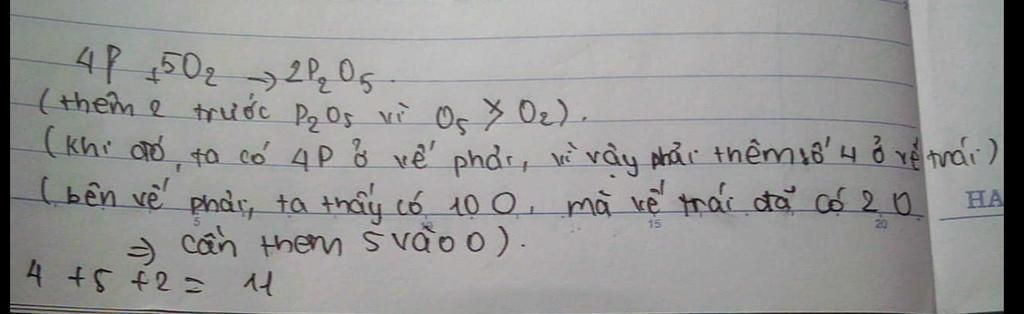 4P + 5O₂ → 2P₂O₅.
(thêm 2 trước P₂O₅ vì O₅ > O₂).
(khi đó, ta có 4P ở vế phải, vì vậy phải thêm số 4 ở vế trái)
(bên vế phải, ta thấy có 10 O, mà vế trái đã có 2 O
⇒ cần them 5 vào O).
4 + 5 + 2 = 11
HA
5 10 15 20